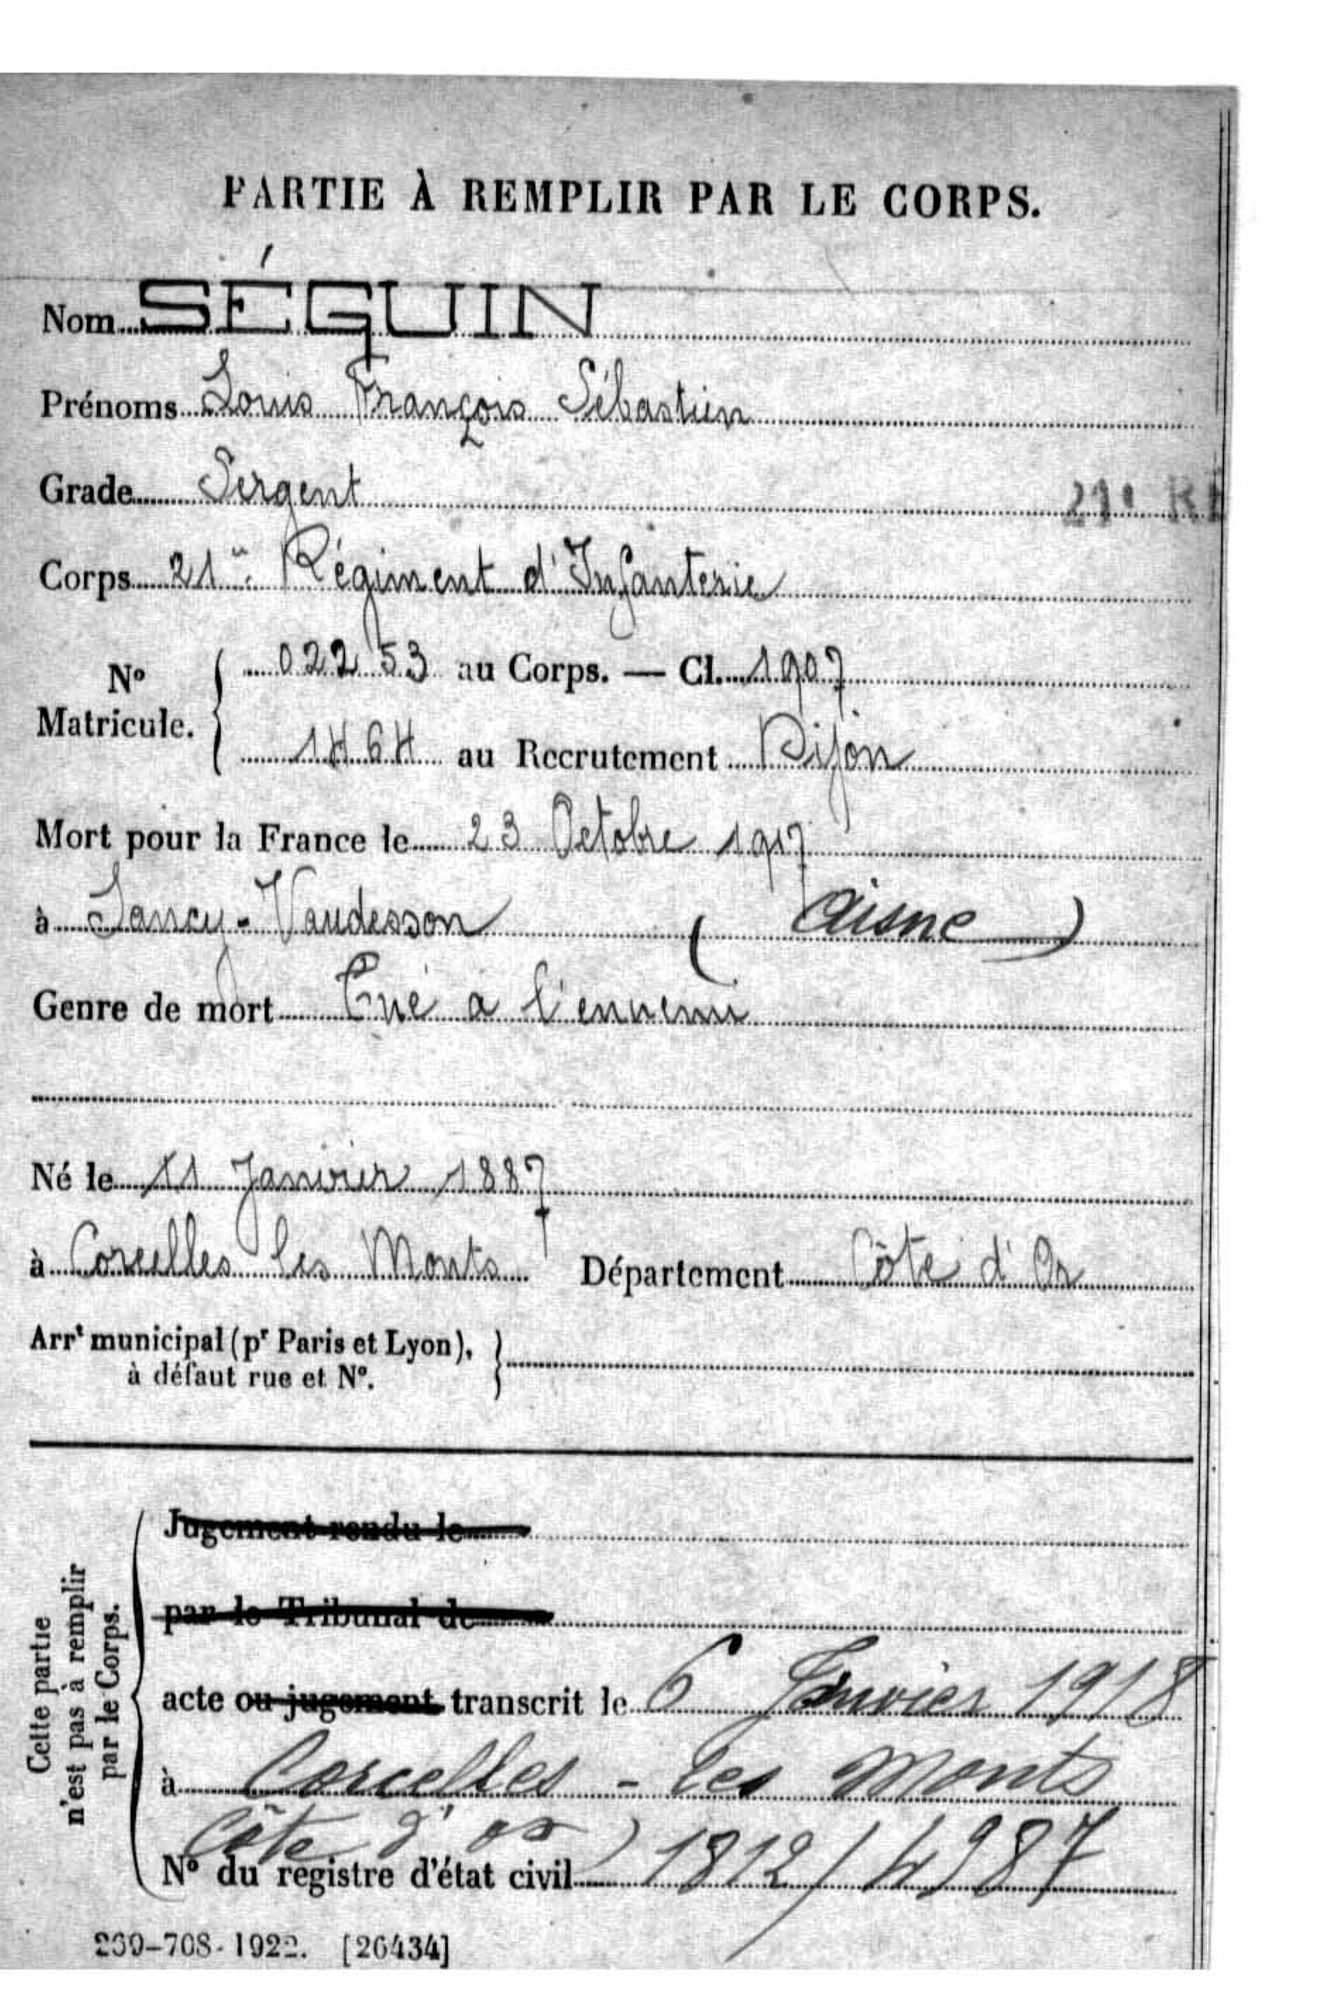 PARTIE À REMPLIR PAR LE CORPS.
Nom SÉGUIN
Prénoms Louis François Sébastien
Grade Sergent
21e RÉ
Corps 21e Régiment d'Infanterie
No Matricule. { 02253 au Corps. — Cl. 1907
1464 au Recrutement Dijon
Mort pour la France le 23 Octobre 1917
à Sancy-Vaudesson (Aisne)
Genre de mort Tué a l'ennemi
Né le 11 Janvier 1887
à Corcelles les Monts Département Côte d'Or
Arrt municipal (pr Paris et Lyon), }
à défaut rue et No.
Cette partie
n'est pas à remplir
par le Corps.
Jugement rendu le
par le Tribunal de
acte ou jugement transcrit le 6 Janvier 1918
à Corcelles-Les Monts
Côte d'or)
No du registre d'état civil 1812/4987
239-708-1922. [26434]